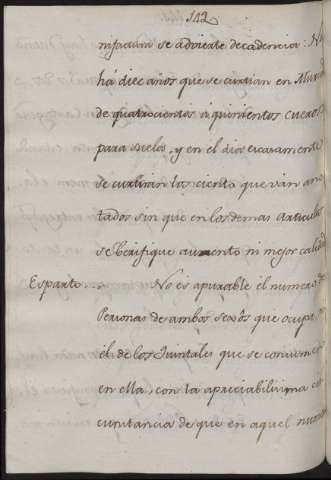 142
se advierte decadencia: N
há diez años que se curtian en Alvar
de quatrocientos á quinientos cueros
para suelas, y en el dia escasamente
se curtiran los ciento que ván ano
tados sin que en los demas articulos
se berifique aumento ni mejor calidad
Esparto. No es apurable el numero de
Personas de ambos sexôs que ocupa, ni
él de los Quintales que se consumen
en ella, con la apreciabilisima cir
cunstancia de que en aquel num